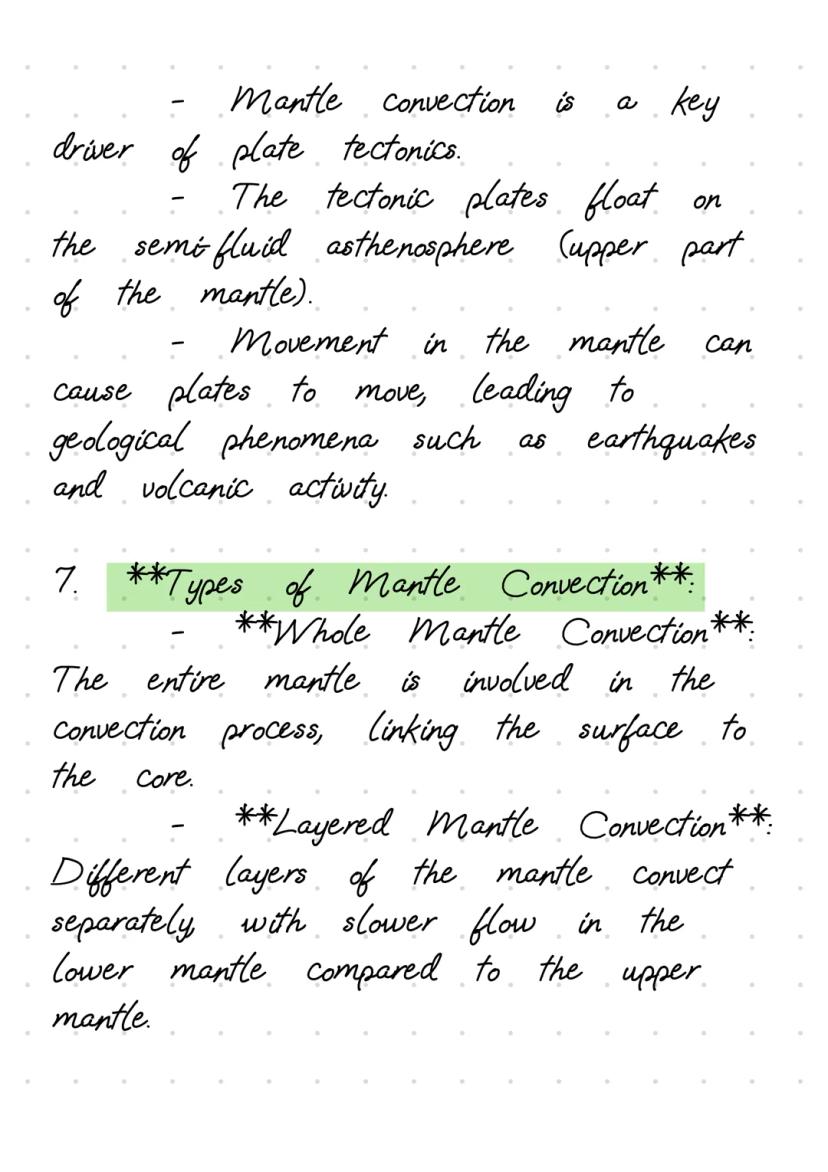 - Mantle convection is a key
driver of plate tectonics.
- The tectonic plates float on
the semi-fluid asthenosphere (upper part
of the mantle).
- Movement in the mantle can
cause plates to move, leading to
geological phenomena such as earthquakes
and volcanic activity.
7. **Types of Mantle Convection**:
- **Whole Mantle Convection**:
The entire mantle is involved in the
convection process, linking the surface to
the core.
- **Layered Mantle Convection**:
Different layers of the mantle convect
separately, with slower flow in the
lower mantle compared to the upper
mantle.